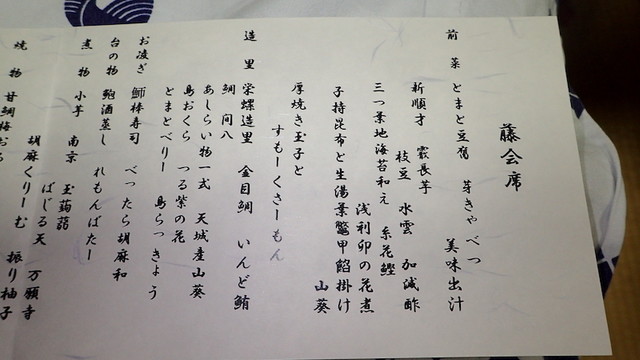 藤会席
前菜 とまと豆腐 芽きゃべつ 美味出汁
折順才 霰長芋 枝豆 水雲 加減酢
三つ葉地海苔和え 糸花鰹
浅利卯の花煮
子持昆布と生湯葉鼈甲餡掛け 山葵
厚焼き玉子と
すもーくさーもん
造里 栄螺造里 金目鯛 いんど鮪
鯛 間八
あしらい物一式 天城産山葵
島おくら つる紫の花
とまとべりー 島らっきょう
お凌ぎ 鰤棒寿司 べったら胡麻和
台の物 鮑酒蒸し れもんばたー
煮物 小芋 南京 玉蒟蒻
ばじる天 万願寺
胡麻くりーむ 振り柚子
焼物 甘鯛梅おろ